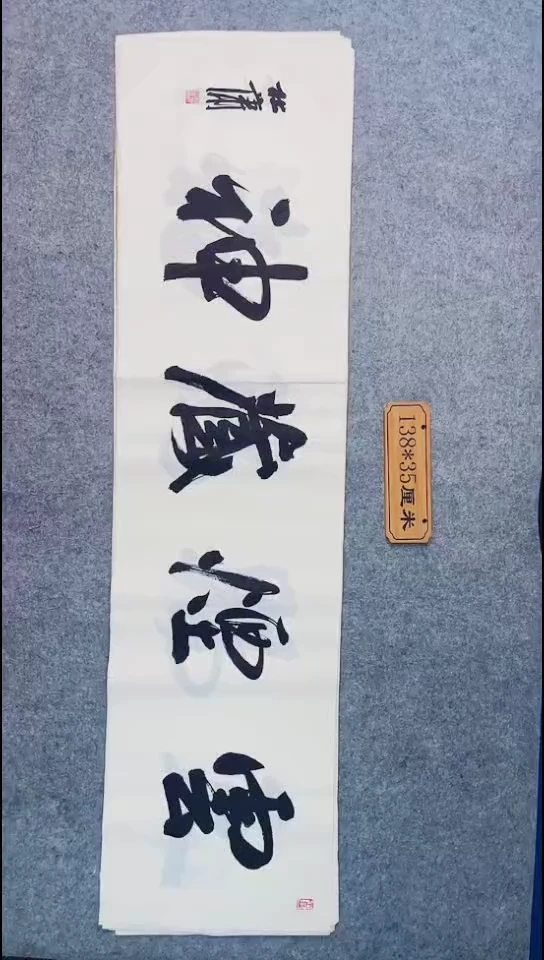 雲煙藏神
138*35厘米